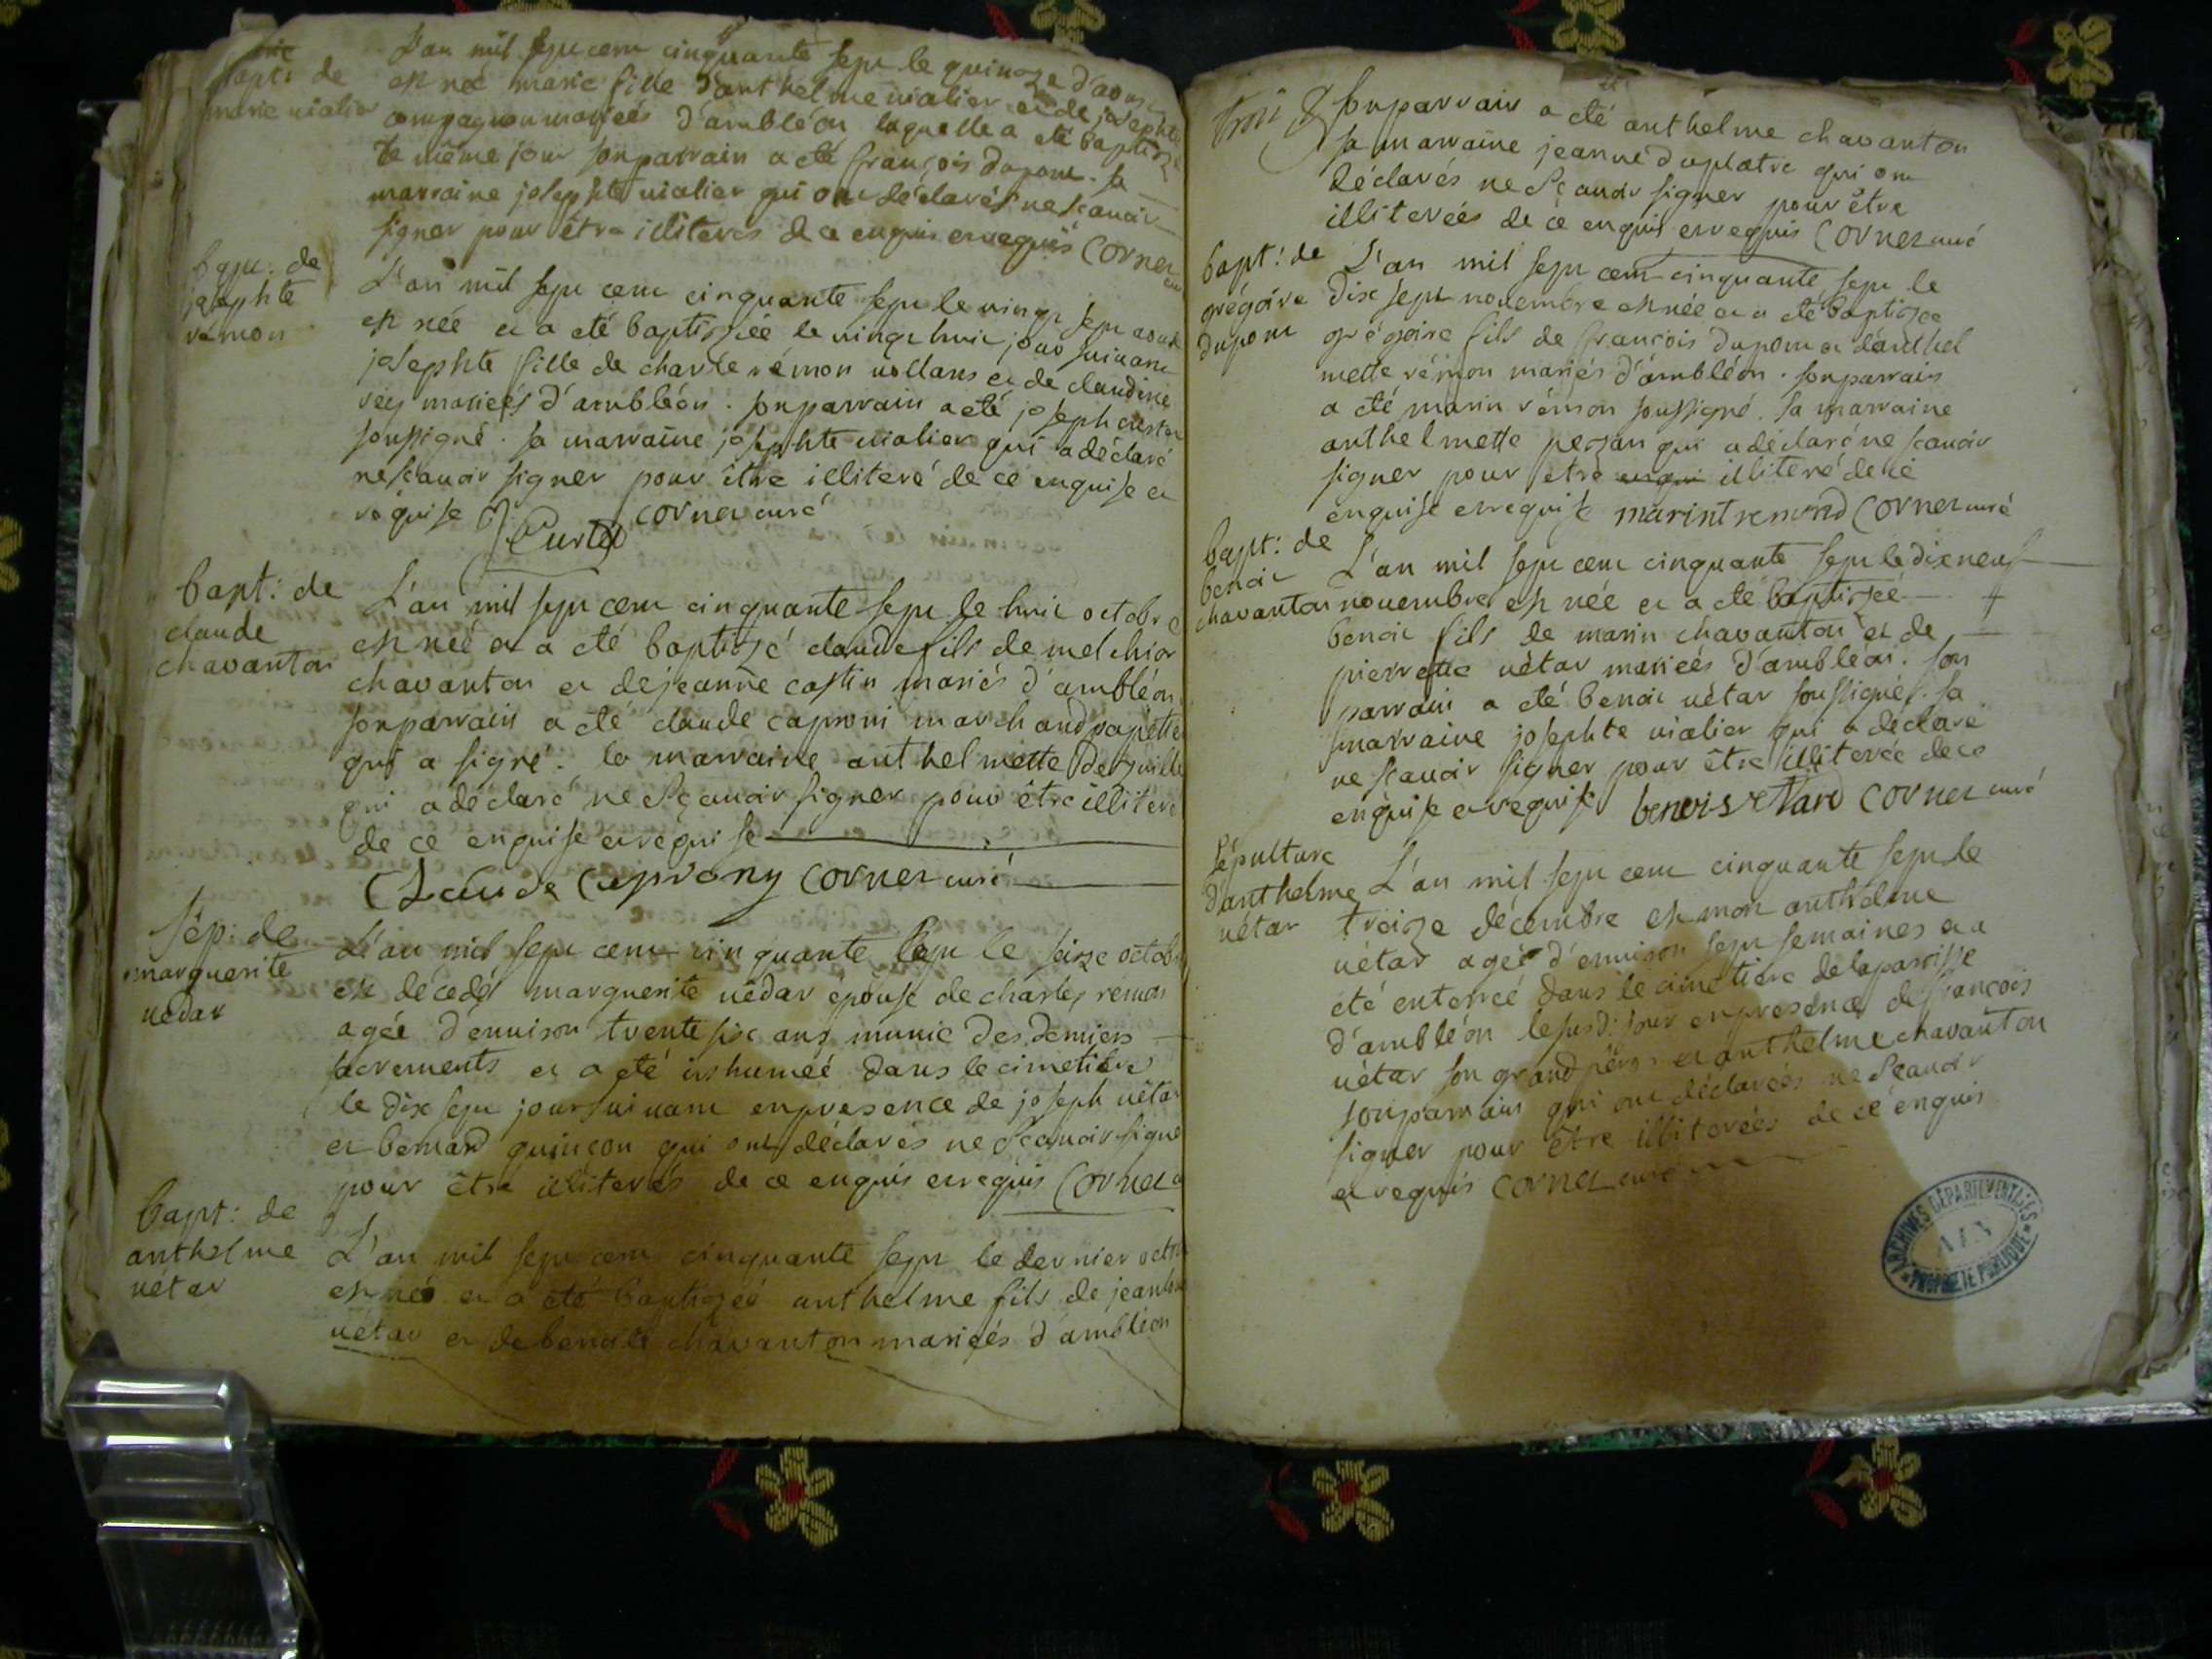 bapt: de
marie vialier
L'an mil sept cent cinquante sept le quinoze d'aoust
est née marie fille d'anthelme vialier et de josephte
compagnon mariéés d'ambléon laquelle a été baptizée
le même jour son parrain a été françois dupont. sa
marraine josephte vialier qui ont déclarés ne scavoir
signer pour être illiterés de ce enquis et requis Cornet
bapt. de
josephte
rémon
L'an mil sept cent cinquante sept le vingt sept aoust
est néé et a été baptizéé le vingt huit jour suivant
josephte fille de charle rémon vollans et de claudine
rey mariéés d'ambléon. son parrain a été joseph
soussigné. sa marraine josephte vialier qui a déclaré
ne scavoir signer pour être illiteré de ce enquise et
réquise Curtet Cornet curé
bapt: de
claude
chavanton
L'an mil sept cent cinquante sept le huit octobre
est néé et a été baptizé claude fils de melchior
chavanton et de jeanne castin mariés d'ambléon
son parrain a été claude caproni marchand
qui a signé. la marraine anthelmette
qui a déclaré ne sçavoir signer pour être illiteré
de ce enquise et requise
Claude Caprony Cornet curé
sép: de
marguerite
vedar
L'an mil sept cent cinquante sept le seize octobre
est décedéé marguerite védar épouse de charles remon
agéé d'environ trente six ans munie des derniers
sacrements et a été inhuméé dans le cimetière
le dix sept jour suivant en presence de joseph vétar
et bernard guinçon qui ont déclarés ne sçavoir signer
pour être illiterés de ce enquis et requis Cornet c
bapt: de
anthelme
vétar
L'an mil sept cent cinquante sept le dernier octo
est néé et a été baptizéé anthelme fils de jean
vétar et de benoite chavanton mariéés d'ambléon
Son parrain a été anthelme chavanton
sa marraine jeanne duplatre qui ont
déclarés ne sçavoir signer pour être
illiteréés de ce enquis et requis Cornet curé
bapt: de
grégoire
dupont
L'an mil sept cent cinquante sept le
dix sept novembre est néé et a été baptizéé
grégoire fils de françois dupont et d'anthel
mette rémon mariés d'ambléon. son parrain
a été marin rémon soussigné. sa marraine
anthelmette perzan qui a déclaré ne scavoir
signer pour etre enqui illiteré de ce
énquise et requise marint remond Cornet curé
bapt: de
benoit
chavanton
L'an mil sept cent cinquante sept le dix neuf
novembre est néé et a été baptizéé
benoit fils de marin chavanton et de
pierrette vétar mariéés d'ambléon. son
parrain a été benoit vétar soussigné. sa
marraine josephte vialier qui a déclaré
ne scavoir signer pour être illiteréé de ce
enquise et requise benois vetard Cornet curé
sépulture
d'anthelme
vétar
L'an mil sept cent cinquante sept le
treize décembre est mort anthelme
vétar agéé d'environ sept semaines et a
été enterréé dans le cimetiere de la paroisse
d'ambléon le susd: jour en presence de françois
vétar son grand père et anthelme chavanton
son parrain qui ont déclaréés ne sçavoir
signer pour être illiteréés de ce enquis
et requis Cornet curé
ARCHIVES DÉPARTEMENTALES
AIN
PROPRIÉTÉ PUBLIQUE